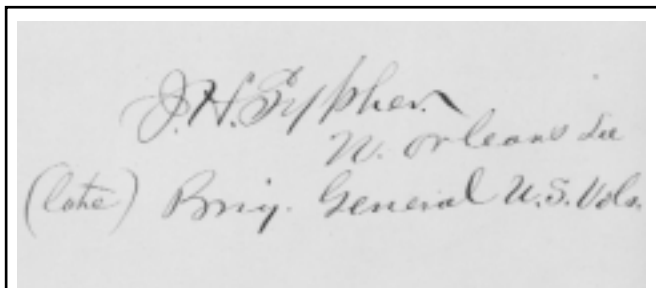 J. H. Sypher.
N. Orleans La
(late) Brig. General U.S. Vols.